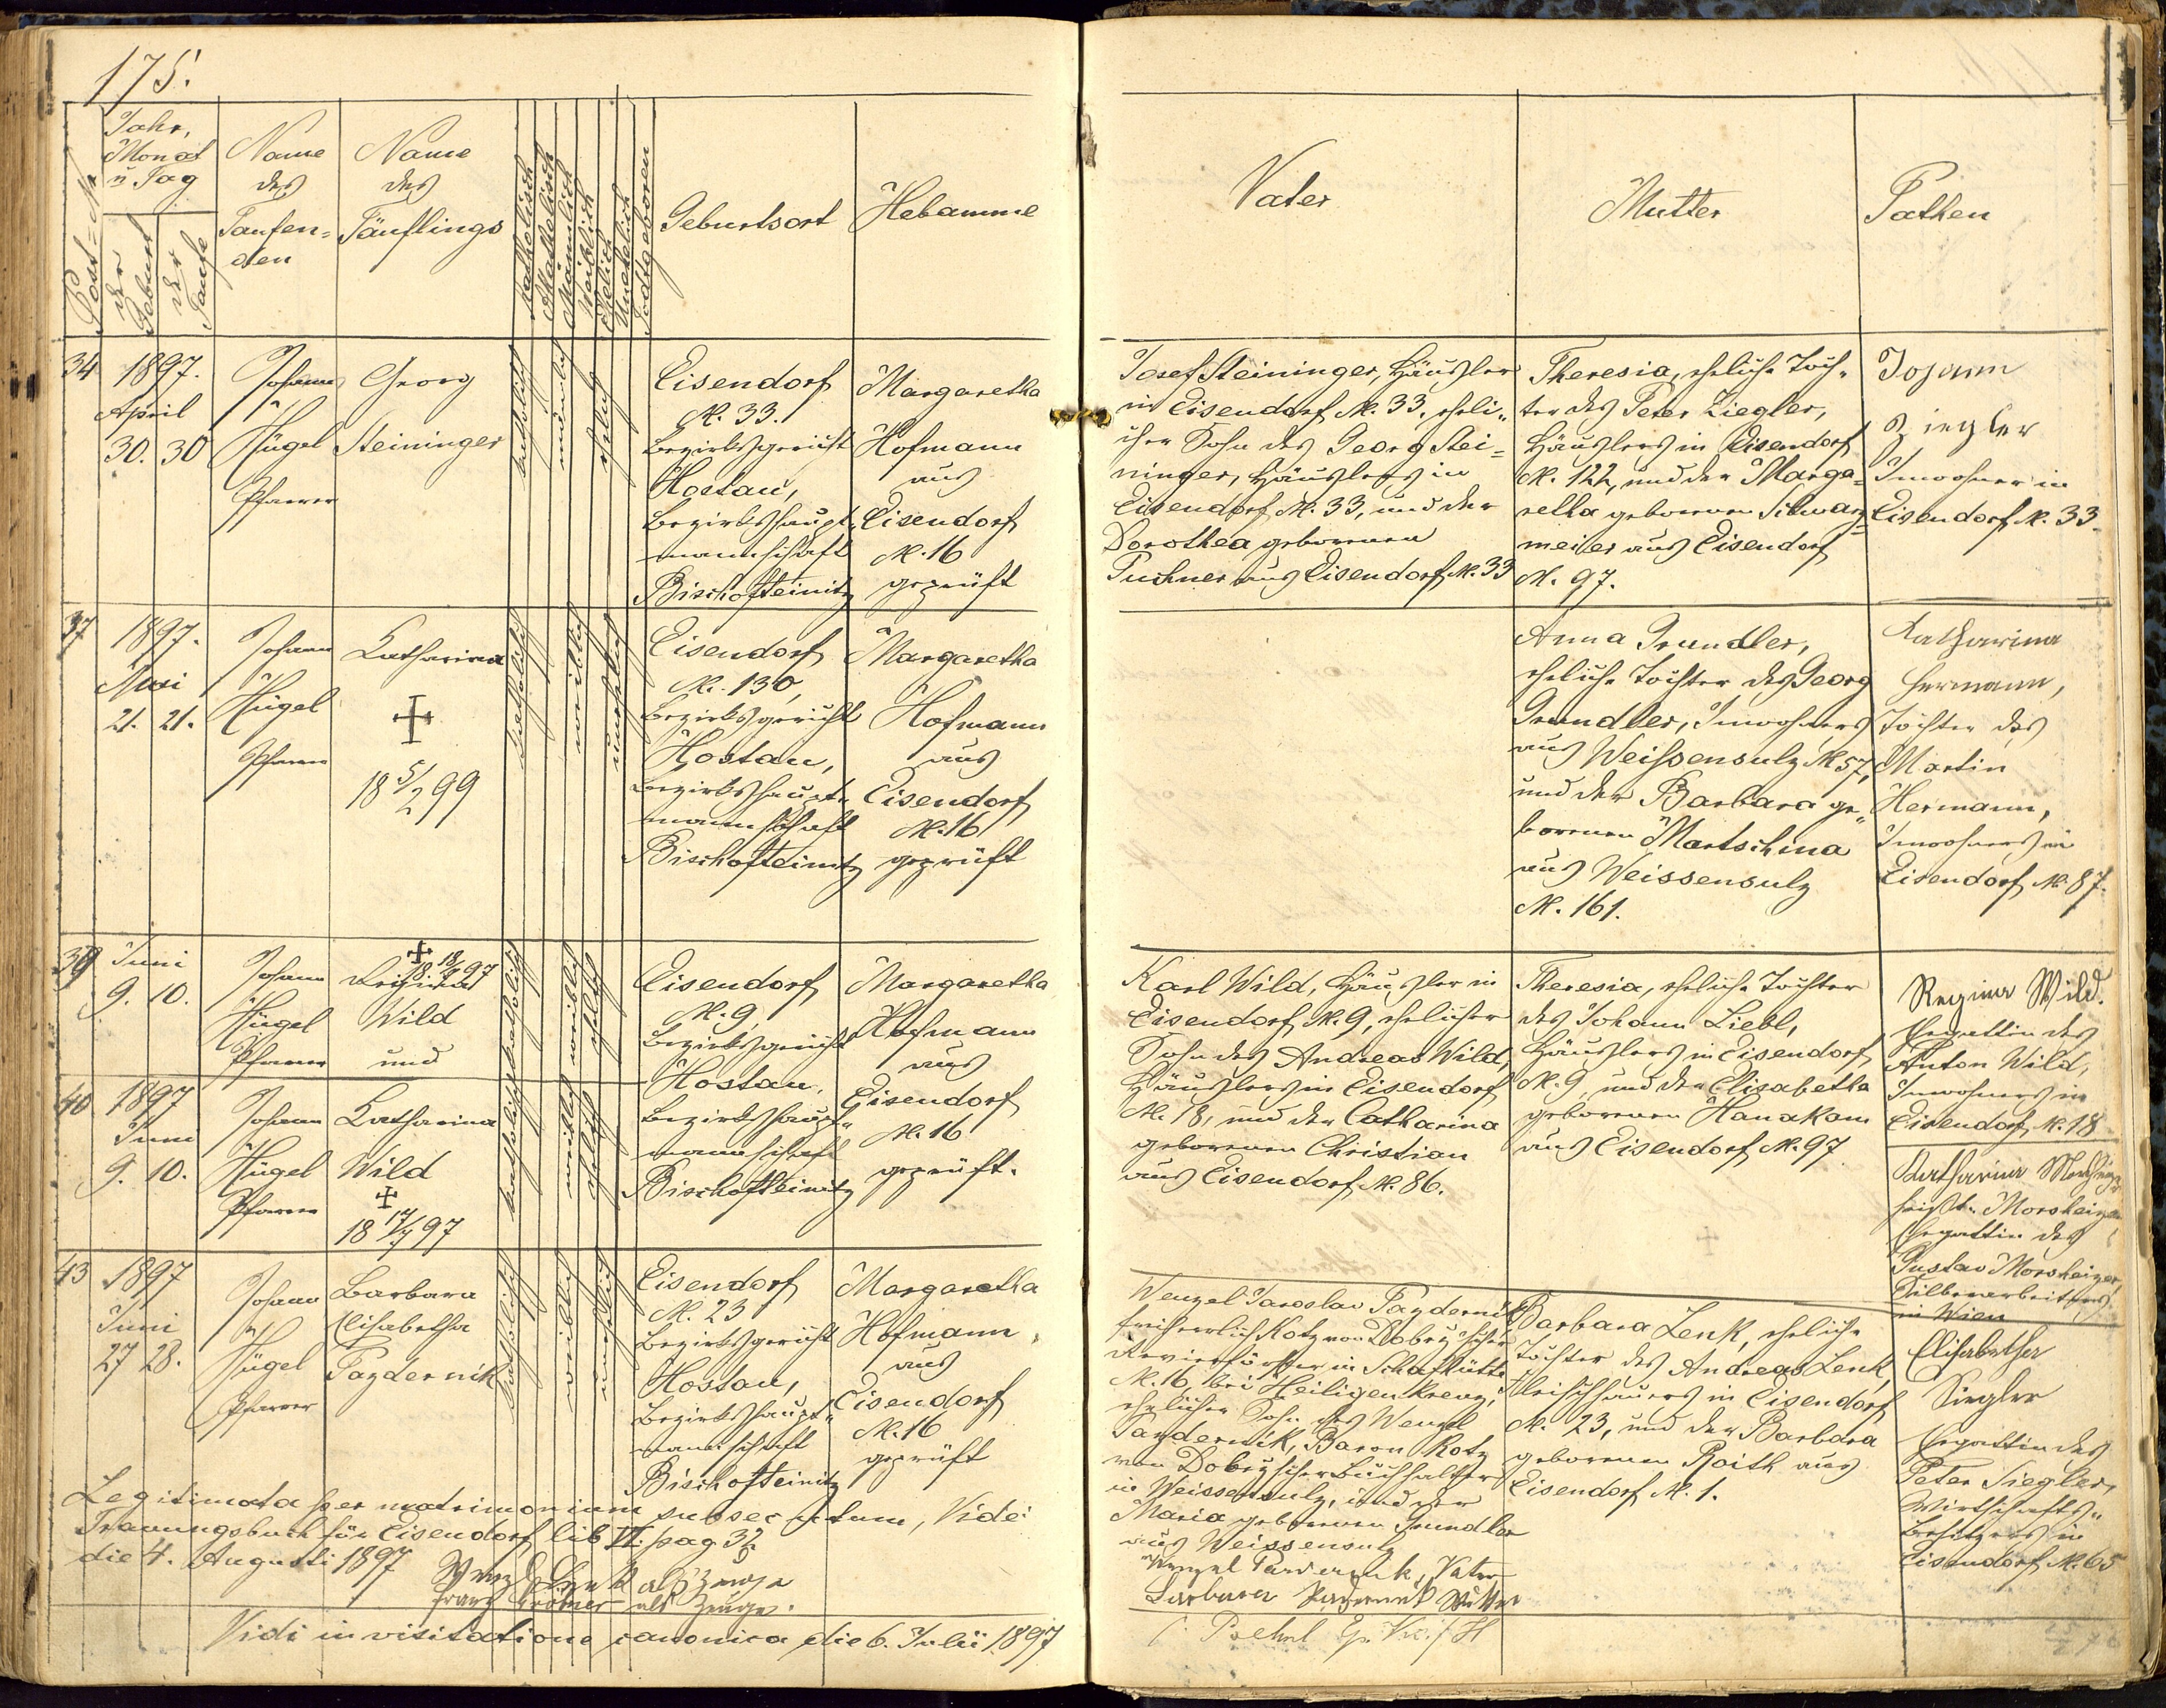 175.
Post=№
Jahr,
Monat
u Tag
der
Geburt
der
Taufe
Name
des
Taufen=
den
Name
des
Täuflings
Katholisch
Akatholisch
Männlich
Weiblich
Ehelich
Unehelich
Todtgeboren
Geburtsort
Hebamme
Vater
Mutter
Pathen
34
1897.
April
30. 30
Johann
Hügel
Pfarrer
Georg
Steininger
katholisch
männlich
ehelich
Eisendorf
№. 33.
Bezirksgericht
Hostau,
Bezirkshaupt-
mannschaft
Bischofteinitz
Margaretha
Hofmann
aus
Eisendorf
№. 16
geprüft
Josef Steininger, Häusler
in Eisendorf №. 33, eheli-
cher Sohn des Georg Stei=
ninger, Häuslers in
Eisendorf №. 33, und der
Dorothea geborenen
Puchner aus Eisendorf №. 33
Theresia, eheliche Toch-
ter des Peter Ziegler,
Häuslers in Eisendorf
№. 122, und der Marga=
retha geborenen Schwarz=
meier aus Eisendorf
№. 97.
Johann
Ziegler
Inwohner in
Eisendorf №. 33
37
1897.
Mai
21. 21.
Johann
Hügel
Pfarrer
Katharina
18 5/2 99
katholisch
weiblich
unehelich
Eisendorf
№. 130,
Bezirksgericht
Hostau,
Bezirkshaupt-
mannschaft
Bischofteinitz
Margaretha
Hofmann
aus
Eisendorf
№. 16
geprüft
Anna Grundler,
eheliche Tochter des Georg
Grundler, Inwohners
aus Weißensulz № 57,
und der Barbara ge-
borenen Martschina
aus Weissensulz
№. 161.
Katharina
Hermann,
Tochter des
Martin
Hermann,
Inwohners in
Eisendorf №. 87.
39
Juni
9. 10.
Johann
Hügel
Pfarrer
Wild
und
katholisch
weiblich
ehelich
Eisendorf
№. 9
Bezirksgericht
Hostau,
Bezirkshaupt-
mannschaft
Bischofteinitz
Margaretha
Hofmann
aus
Eisendorf
№. 16
geprüft.
Karl Wild, Häusler in
Eisendorf №. 9, ehelicher
Sohn des Andreas Wild,
Häuslers in Eisendorf
№. 18, und der Catharina
geborenen Christian
aus Eisendorf №. 86.
Theresia, eheliche Tochter
des Johann Liebl,
Häuslers in Eisendorf
№. 9, und der Elisabetha
geborenen Hanakam
aus Eisendorf №. 97
Regina Wild.
Ehegattin des
Anton Wild,
Inwohners in
Eisendorf №. 18
40
1897
Juni
9. 10.
Johann
Hügel
Pfarrer
Katharina
Wild
18 17/7 97
katholisch
weiblich
ehelich
Katharina
Ehegattin des
Gustav Morsheizer,
Silberarbeiters
in Wien
43
1897
Juni
27 28.
Johann
Hügel
Pfarrer
Barbara
Elisabetha
Pazdernik
katholisch
weiblich
unehelich
Eisendorf
№. 23
Bezirksgericht
Hostau,
Bezirkshaupt-
mannschaft
Bischofteinitz
Margaretha
Hofmann,
aus
Eisendorf
№. 16
geprüft
Wenzel Jaroslav Pazdernik
freiherrlich Kotz von Dobrz'scher
Revierförster in Schafhütte
№. 16 bei Heiligenkreuz,
ehelicher Sohn des Wenzel
Pazdernik, Baron Kotz
von Dobrz'scher Buchhalter
in Weissensulz, und der
Maria geborenen Grundler
aus Weissensulz
Wenzel Pazdernik, Vater
Barbara Pazdernik Mutter
Barbara Zenk, eheliche
Tochter des Andreas Zenk,
Fleischhauers in Eisendorf
№. 23, und der Barbara
geborenen Roith aus
Eisendorf №. 1.
Elisabetha
Siegler
Ehegattin des
Peter Siegler,
Wirtschafts-
besitzers in
Eisendorf №. 65
Legitimata per matrimonium subsecutum, Vide:
Trauungsbuch für Eisendorf lib VI. pag 32
die 4. Augusti 1897
als Zeuge
Franz als Zeuge.
Vidi in visitatione canonica die 6. Julii 1897